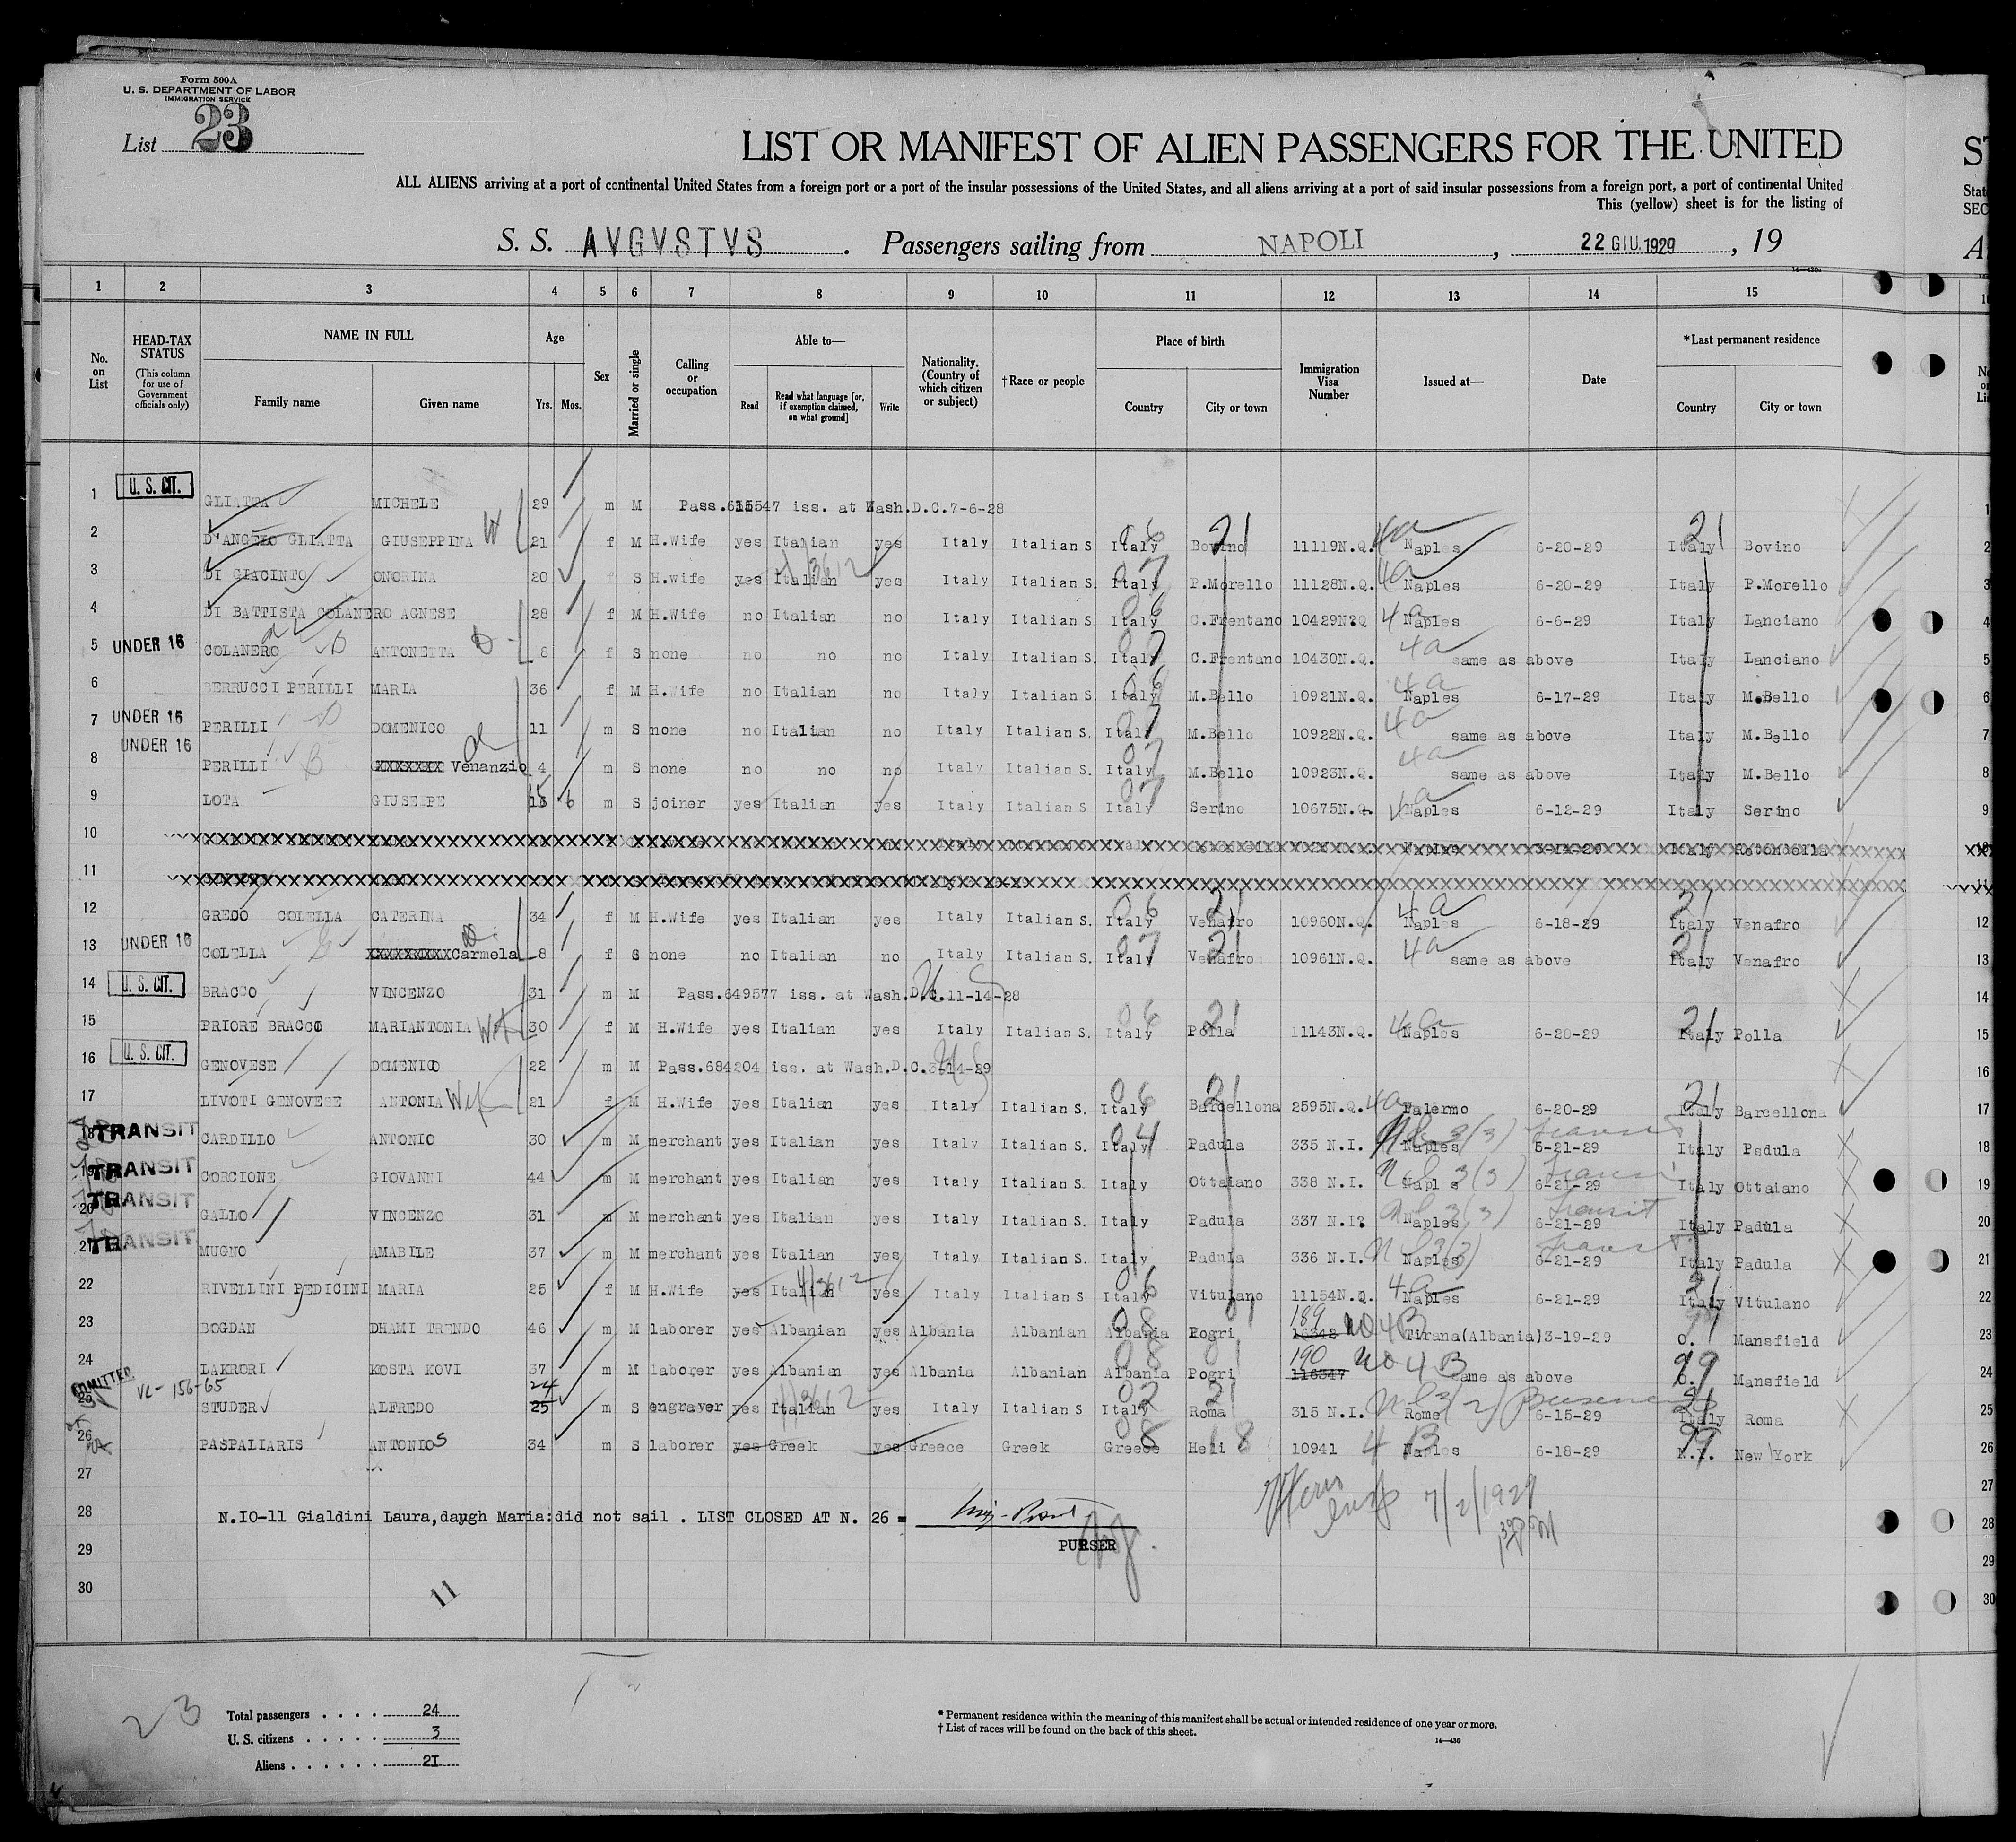 Form 500A
U. S. DEPARTMENT OF LABOR
IMMIGRATION SERVICE
List 23
LIST OR MANIFEST OF ALIEN PASSENGERS FOR THE UNITED
ALL ALIENS arriving at a port of continental United States from a foreign port or a port of the insular possessions of the United States, and all aliens arriving at a port of said insular possessions from a foreign port, a port of continental United
This (yellow) sheet is for the listing of
S. S. AVGVSTVS. Passengers sailing from NAPOLI, 22 GIU. 1929, 19
1 2 3 4 5 6 7 8 9 10 11 12 13 14 15
No. on List
HEAD-TAX STATUS (This column for use of Government officials only)
NAME IN FULL Family name Given name
Age Yrs. Mos.
Sex
Married or single
Calling or occupation
Able to— Read Read what language [or, if exemption claimed, on what ground] Write
Nationality. (Country of which citizen or subject)
†Race or people
Place of birth Country City or town
Immigration Visa Number
Issued at—
Date
*Last permanent residence Country City or town
1 U. S. CIT. GLIATTA MICHELE 29 m M Pass. 47 iss. at Wash.D.C.7-6-28
2 D'ANGELO GLIATTA GIUSEPPINA W 21 f M H.Wife yes Italian yes Italy Italian S Italy 06 Bovino 21 11119N.Q. 4a Naples 6-20-29 Italy 21 Bovino 2
3 DI GIACINTO ONORINA 20 f S H.wife yes Italian yes Italy Italian S. Italy 07 P.Morello 11128N.Q. 4a Naples 6-20-29 Italy P.Morello 3
4 DI BATTISTA COLANERO AGNESE 28 f M H.Wife no Italian no Italy Italian S. Italy 06 C.Frentano 10429N?Q 4a Naples 6-6-29 Italy Lanciano 4
5 UNDER 16 COLANERO ANTONETTA 8 f S none no no no Italy Italian S. Italy 07 C.Frentano 10430N.Q. 4a same as above Italy Lanciano 5
6 BERRUCCI PERILLI MARIA 36 f M H.Wife no Italian no Italy Italian S. Italy 06 M.Bello 10921N.Q. 4a Naples 6-17-29 Italy M.Bello 6
7 UNDER 16 PERILLI DOMENICO 11 m S none no Italian no Italy Italian S. Italy 07 M.Bello 10922N.Q. 4a same as above Italy M.Bello 7
8 UNDER 16 PERILLI XXXXXXXX Venanzio 4 m S none no no no Italy Italian S. Italy 07 M.Bello 10923N.Q. 4a same as above Italy M.Bello 8
9 LOTA GIUSEPPE 15 6 m S joiner yes Italian yes Italy Italian S Italy 07 Serino 10675N.Q. 4a Naples 6-12-29 Italy Serino 9
10
11
12 GRECO COLELLA CATERINA 34 f M H.Wife yes Italian yes Italy Italian S. Italy 06 Venafro 21 10960N.Q. 4a Naples 6-18-29 Italy 21 Venafro 12
13 UNDER 16 COLELLA XXXXXXXXXX Carmela 8 f S none no Italian no Italy Italian S. Italy 07 Venafro 21 10961N.Q. 4a same as above Italy 21 Venafro 13
14 U. S. CIT. BRACCO VINCENZO 31 m M Pass.649577 iss. at Wash.D.C.11-14-28 14
15 PRIORE BRACCO MARIANTONIA 30 f M H.Wife yes Italian yes Italy Italian S. Italy 06 Polla 21 11143N.Q. 4a Naples 6-20-29 Italy 21 Polla 15
16 U. S. CIT. GENOVESE DOMENICO 22 m M Pass.684204 iss. at Wash.D.C.3-14-29 16
17 LIVOTI GENOVESE ANTONIA 21 f M H.Wife yes Italian yes Italy Italian S. Italy 06 Barcellona 21 2595N.Q. 4a Palermo 6-20-29 Italy 21 Barcellona 17
18 TRANSIT CARDILLO ANTONIO 30 m M merchant yes Italian yes Italy Italian S. Italy 04 Padula 335 N.I. 3(3) Naples Transit 5-21-29 Italy Padula 18
19 TRANSIT CORCIONE GIOVANNI 44 m M merchant yes Italian yes Italy Italian S. Italy Ottaiano 338 N.I. 3(3) Napl s Transit 6-21-29 Italy Ottaiano 19
20 TRANSIT GALLO VINCENZO 31 m M merchant yes Italian yes Italy Italian S. Italy Padula 337 N.I? 3(3) Naples Transit 6-21-29 Italy Padula 20
21 TRANSIT MUGNO AMABILE 37 m M merchant yes Italian yes Italy Italian S. Italy Padula 336 N.I. 3(3) Naples Transit 6-21-29 Italy Padula 21
22 RIVELLINI PEDICINI MARIA 25 f M H.Wife yes Italian yes Italy Italian S Italy 06 Vitulano 11154N.Q. 4a Naples 6-21-29 Italy 21 Vitulano 22
23 BOGDAN DHAMI TRENDO 46 m M laborer yes Albanian yes Albania Albanian Albania 08 Pogri 189 4B Tirana(Albania)3-19-29 O. Mansfield 23
24 LAKRORI KOSTA KOVI 37 m M laborer yes Albanian yes Albania Albanian Albania 08 Pogri 190 116347 4B same as above O. 99 Mansfield 24
25 ADMITTED VL-156-65 STUDER ALFREDO 24 25 m S engraver yes Italian yes Italy Italian S Italy 02 Roma 21 315 N.I. 3(2) Rome 6-15-29 Italy Roma 25
26 PASPALIARIS ANTONIOS 34 m S laborer yes Greek yes Greece Greek Greece 08 Heli 10941 4B Naples 6-18-29 N.Y. 99 New York 26
27
28 N.IO-11 Gialdini Laura,daugh Maria:did not sail . LIST CLOSED AT N. 26 =
7/2/1929
29 PURSER
30
11
23
Total passengers . . . . 24
U. S. citizens . . . . . 3
Aliens . . . . . . 2I
* Permanent residence within the meaning of this manifest shall be actual or intended residence of one year or more.
† List of races will be found on the back of this sheet.
14—430